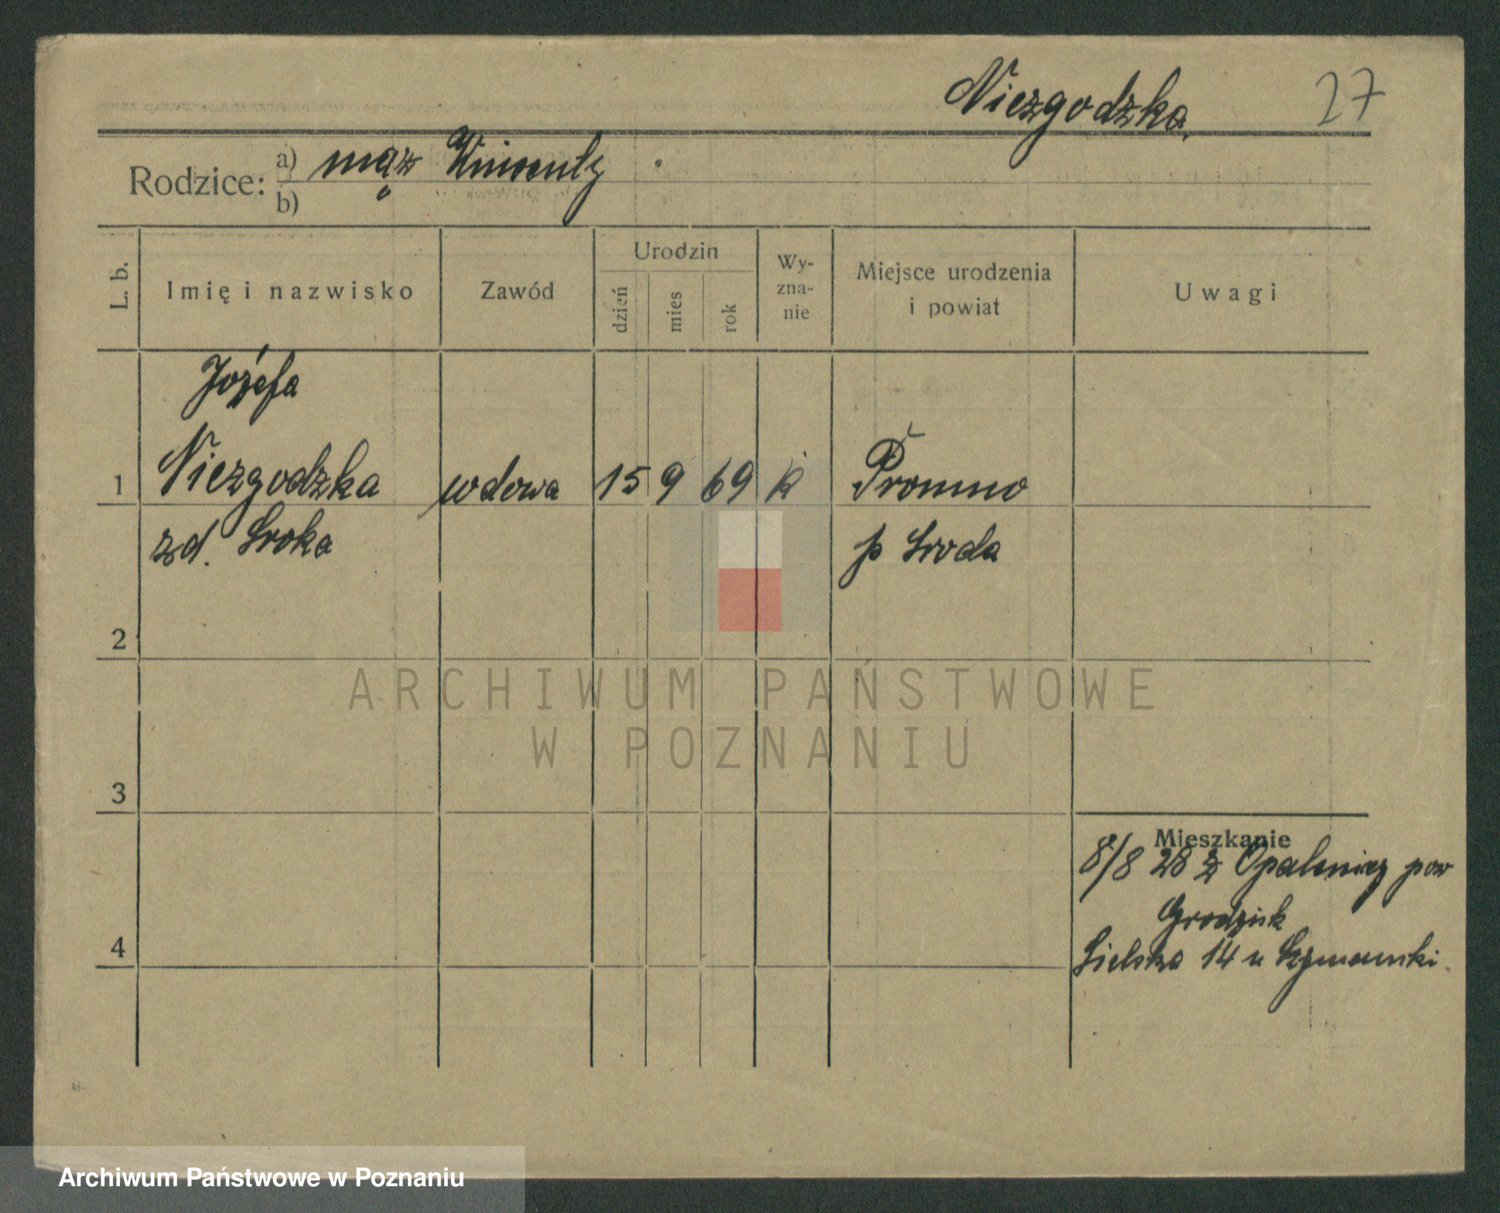 Niezgodzka. 27
Rodzice: a) mąż Wincenty
b)
L. b. Imię i nazwisko Zawód Urodzin dzień mies rok Wyznanie Miejsce urodzenia i powiat Uwagi
Józefa
1 Niezgodzka wdowa 15 9 69 k Promno
zd. Sroka p Sroda
2
ARCHIWUM PAŃSTWOWE
W POZNANIU
3
Mieszkanie
8/8 28 z Opalenicy pow
Grodzisk
4 14 u
Archiwum Państwowe w Poznaniu